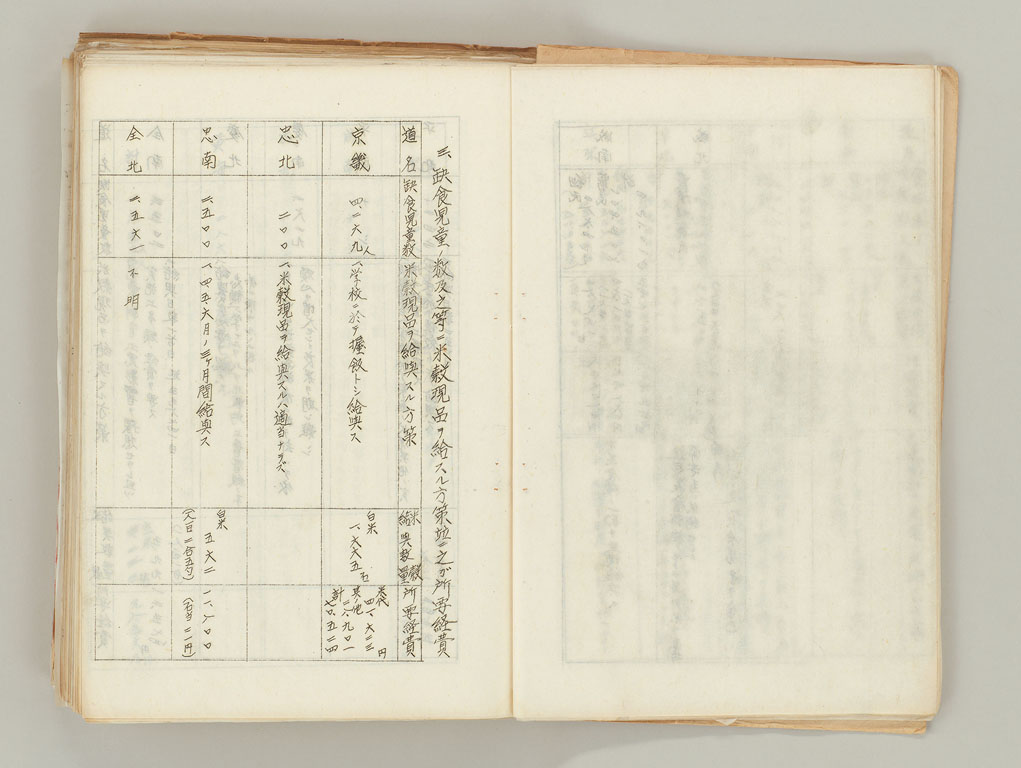 三、缺食児童ノ数及之等ニ米穀現品ヲ給スル方策竝ニ之ガ所要経費
道名
缺食児童数
米穀現品ヲ給與スル方策
米穀給與数量
所要経費
京畿
四、二六九人
一、学校ニ於テ握飯トシ給與ス
白米
一、六六五石
米代 四一、六二三円
其ノ他 二八、九〇一
計 七〇、五二四
忠北
二〇〇
一、米穀現品ヲ給與スルハ適当ナラズ
忠南
二、五〇〇
一、四、五、六月ノ三ヶ月間給與ス
白米
五六二
(人一日二合五勺)
一一、八〇〇
(石当二一円)
全北
二、五六一
不明